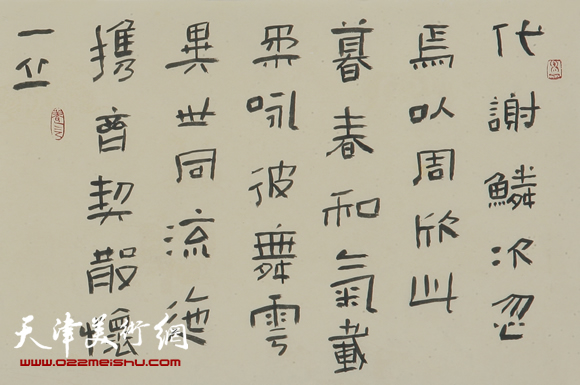 代謝鱗次忽
焉以周欣此
暮春和氣載
柔咏彼舞雩
異世同流迤
携齊契散懷
一丘
天津美術網
www.022meishu.com